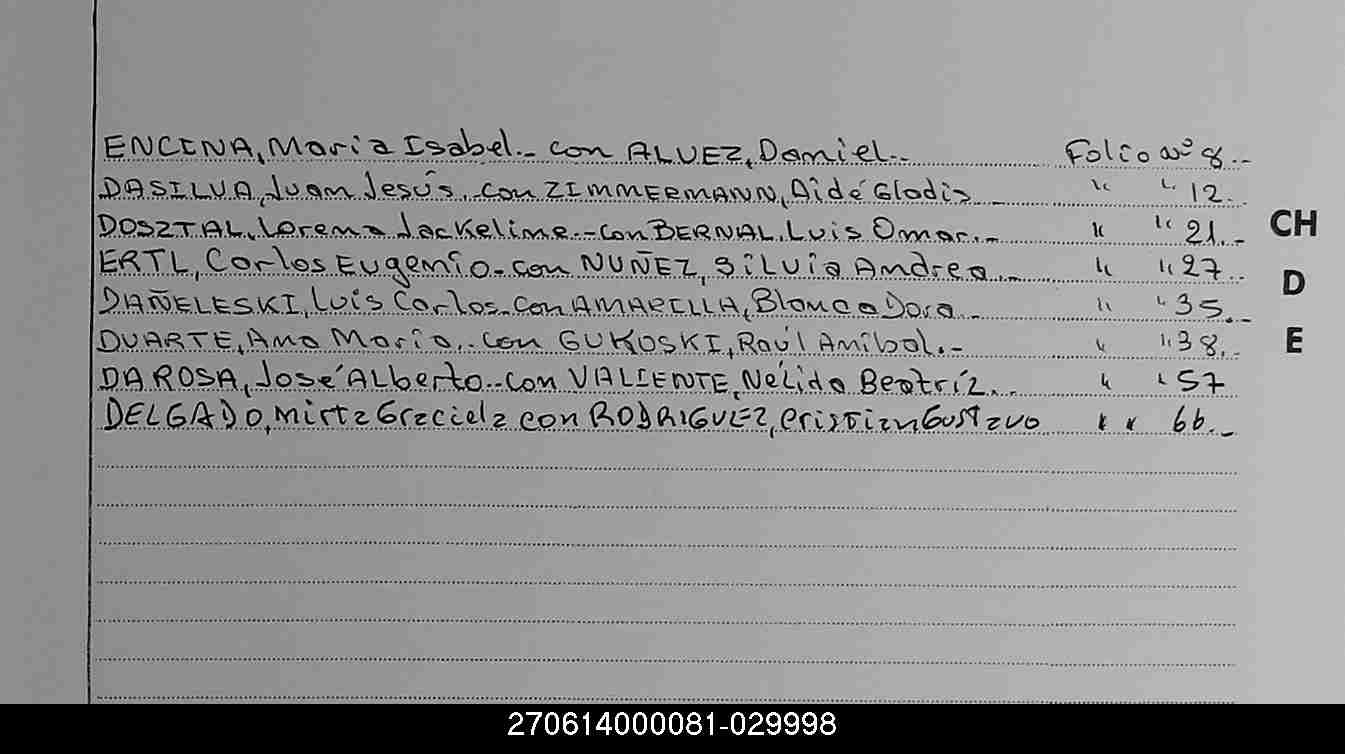 ENCINA, Maria Isabel.- con ALVEZ, Daniel.. Folio Nº 8..
DASILVA, Juan Jesús.. con ZIMMERMANN, Aidé Gladis " " 12..
DOSZTAL, Lorena Jackeline.- con BERNAL, Luis Omar..- " " 21.-
ERTL, Carlos Eugenio.- con NUÑEZ, Silvia Andrea.. " " 27..
DAÑELESKI, Luis Carlos.. con AMARILLA, Blanca Dora.. " " 35..
DUARTE, Ana Maria... con GUKOSKI, Raúl Anibal..- " " 38..
DA ROSA, José Alberto.. con VALIENTE, Nélida Beatríz... " " 57
DELGADO, Mirta Graciela con RODRIGUEZ, Cristian Gustavo " " 66..
CH
D
E
270614000081-029998